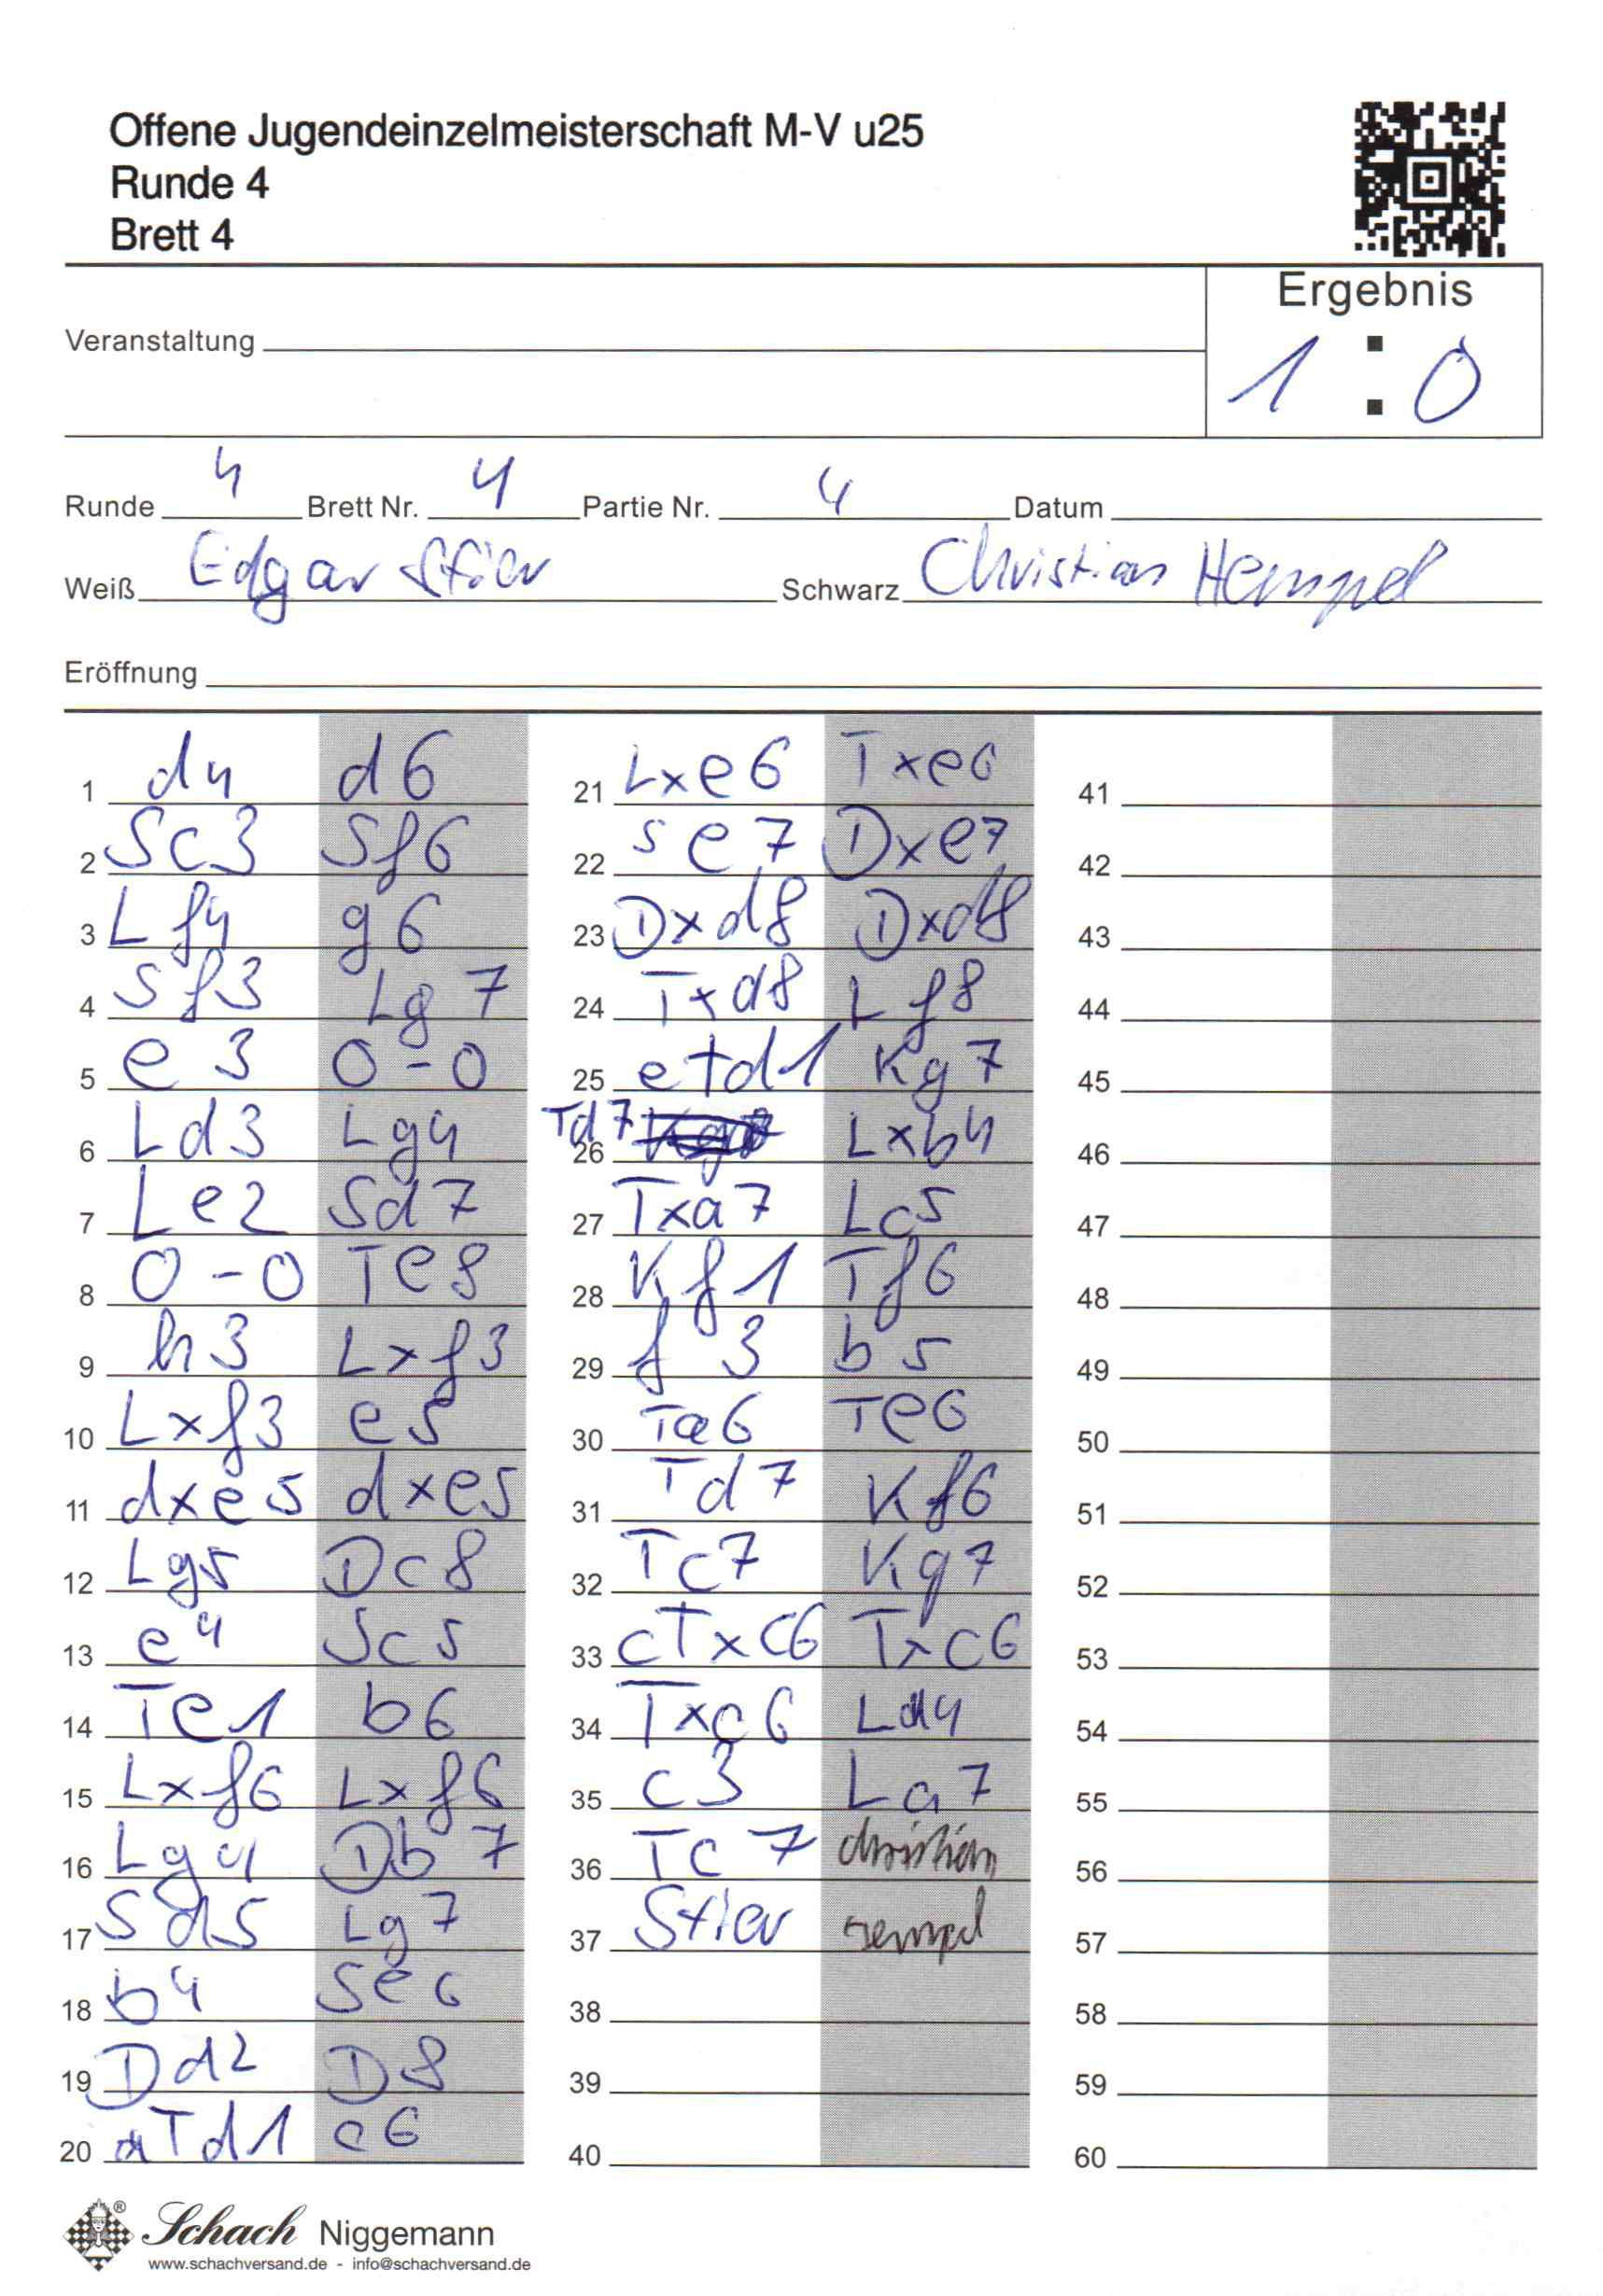 Offene Jugendeinzelmeisterschaft M-V u25
Runde 4
Brett 4
Ergebnis
1 : 0
Veranstaltung
Runde 4 Brett Nr. 4 Partie Nr. 4 Datum
Weiß Edgar Stier Schwarz Christian Hempel
Eröffnung
1 d4 d6
2 Sc3 Sf6
3 Lf4 g6
4 Sf3 Lg7
5 e3 0-0
6 Ld3 Lg4
7 Le2 Sd7
8 0-0 Te8
9 h3 Lxf3
10 Lxf3 e5
11 dxe5 dxe5
12 Lg5 Dc8
13 e4 Sc5
14 Te1 b6
15 Lxf6 Lxf6
16 Lg4 Db7
17 Sd5 Lg7
18 b4 Se6
19 Dd2 D8
20 aTd1 c6
21 Lxe6 Txe6
22 Se7 Dxe7
23 Dxd8 Dxd8
24 Txd8 Lf8
25 eTd1 Kg7
26 Td7 Lxb4
27 Txa7 Lc5
28 Kf1 Tf6
29 f3 b5
30 Ta6 Te6
31 Td7 Kf6
32 Tc7 Kg7
33 cTxc6 Txc6
34 Txc6 Ld4
35 c3 La7
36 Tc7 Christian
37 Stier Hempel
38
39
40
41
42
43
44
45
46
47
48
49
50
51
52
53
54
55
56
57
58
59
60
Schach Niggemann
www.schachversand.de - info@schachversand.de